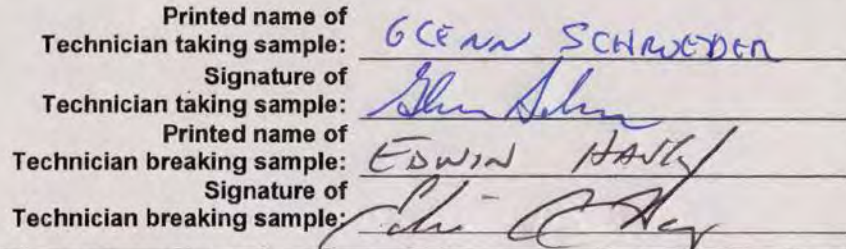 Printed name of
Technician taking sample: GLENN SCHROEDER
Signature of
Technician taking sample:
Printed name of
Technician breaking sample: EDWIN
Signature of
Technician breaking sample: